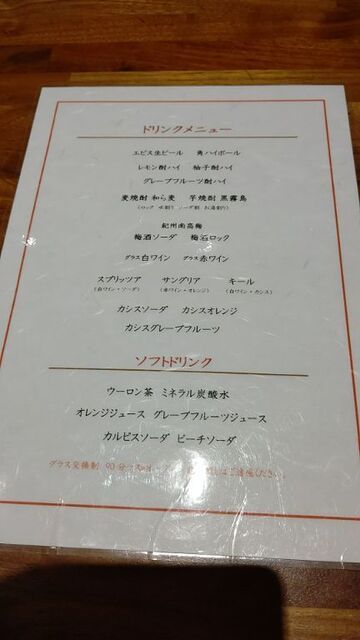 ドリンクメニュー
エビス生ビール 角ハイボール
レモン酎ハイ 柚子酎ハイ
グレープフルーツ酎ハイ
麦焼酎 和ら麦 芋焼酎 黒霧島
(ロック 水割り ソーダ割 お湯割り)
紀州南高梅
梅酒ソーダ 梅酒ロック
グラス白ワイン グラス赤ワイン
スプリッツア サングリア キール
(白ワイン・ソーダ) (赤ワイン・オレンジ) (白ワイン・カシス)
カシスソーダ カシスオレンジ
カシスグレープフルーツ
ソフトドリンク
ウーロン茶 ミネラル炭酸水
オレンジジュース グレープフルーツジュース
カルピスソーダ ピーチソーダ
グラス交換制 90分 はご遠慮ください。